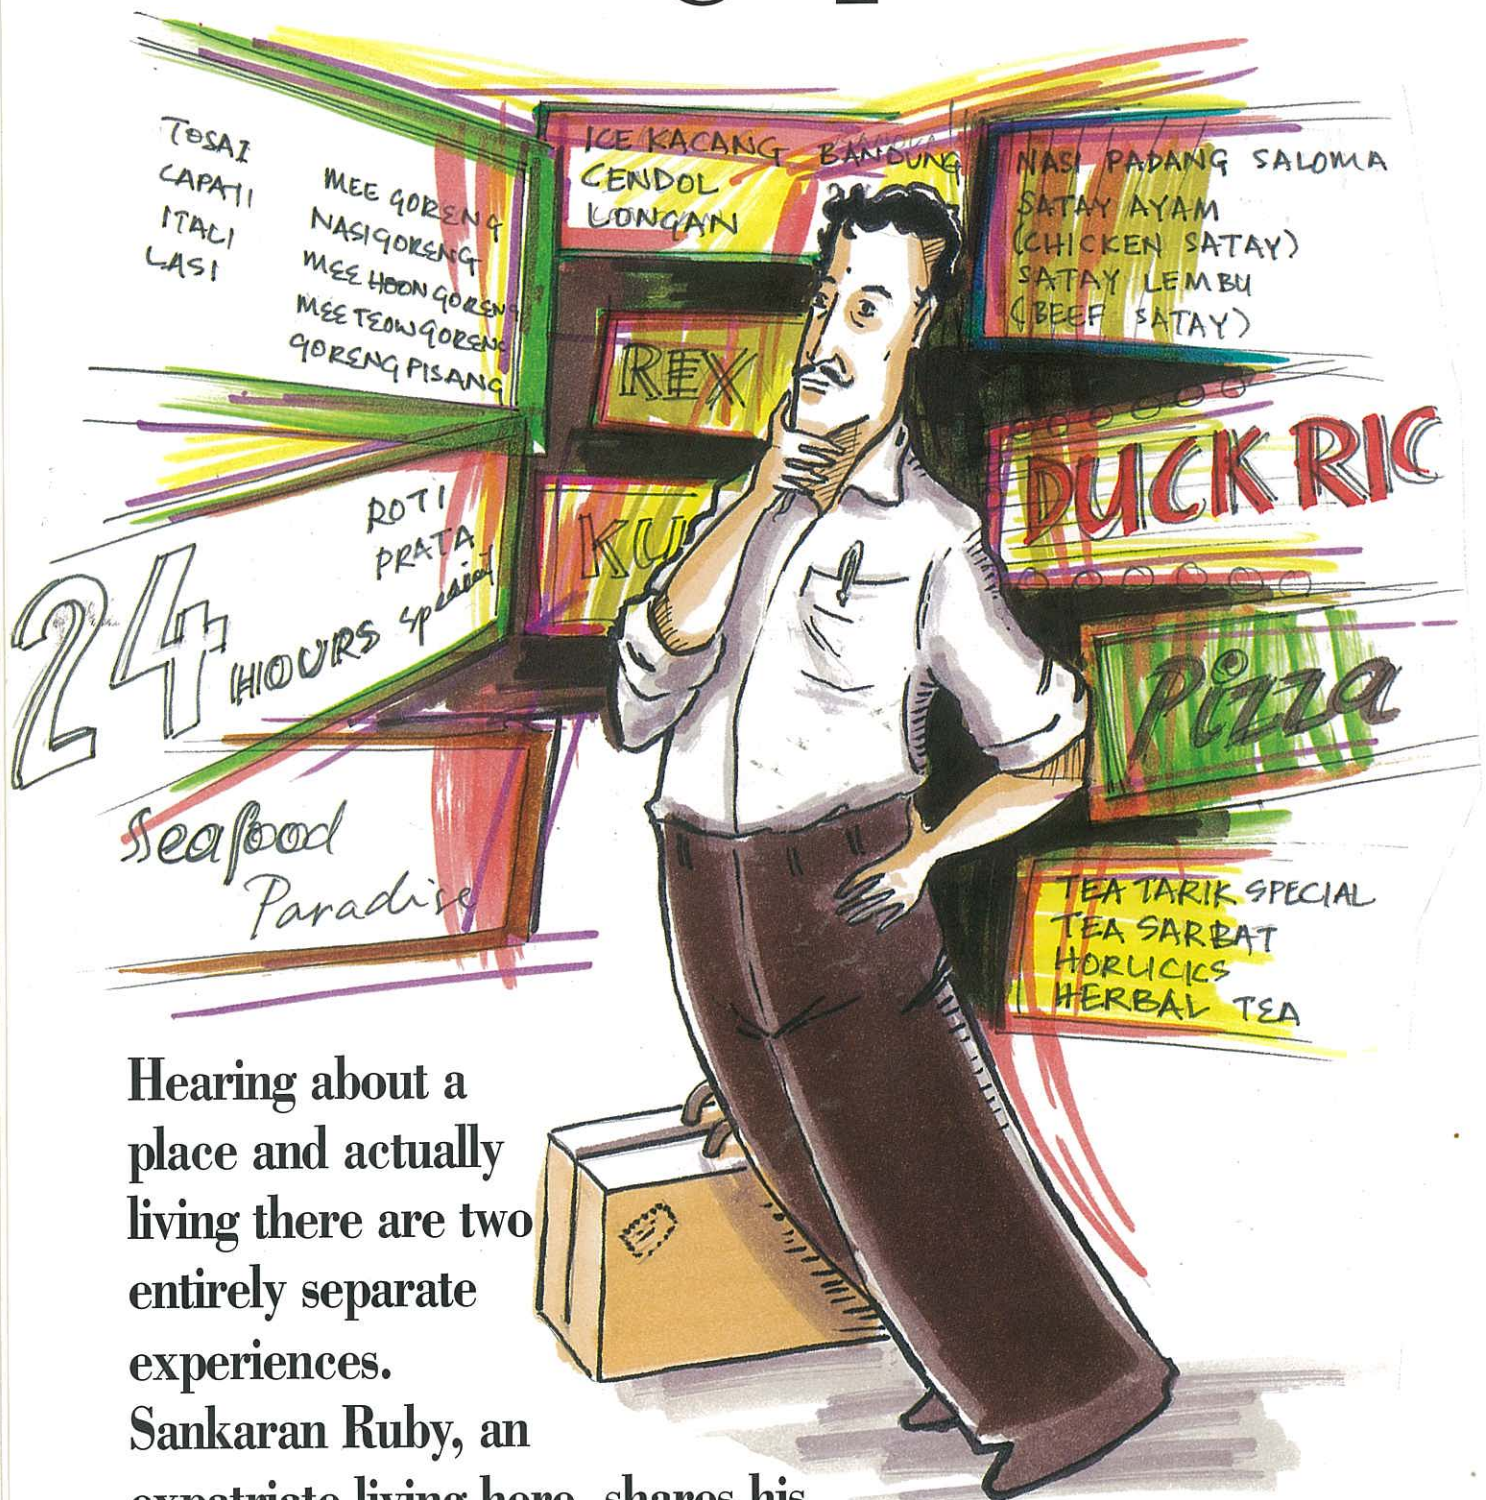 TOSAI
CAPATI
ITALI
LASI
MEE GORENG
NASI GORENG
MEE HOON GORENG
MEE TEOW GORENG
GORENG PISANG
ICE KACANG BANDUNG
CENDOL
LONGAN
NASI PADANG SALOMA
SATAY AYAM
(CHICKEN SATAY)
SATAY LEMBU
(BEEF SATAY)
REX
KU
DUCK RIC
ROTI
PRATA
24 HOURS special
Pizza
Seafood
Paradise
TEA TARIK SPECIAL
TEA SARBAT
HORLICKS
HERBAL TEA
Hearing about a
place and actually
living there are two
entirely separate
experiences.
Sankaran Ruby, an
expatriate living here, shares his